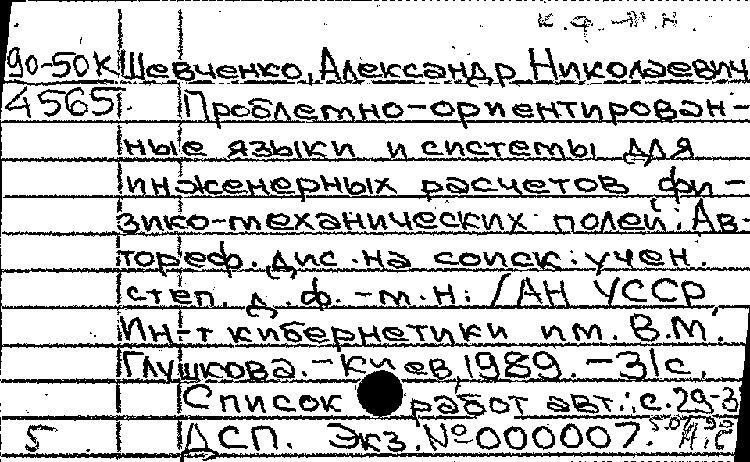 к.ф.-м.н.
90-50К Шевченко, Александр Николаевич
4565 Проблемно-ориентирован-
ные языки и системы для
инженерных расчетов фи-
зико-механических полей: Ав-
тореф. дис. на соиск. учен.
степ. д.ф.-м.н: /АН УССР
Ин-т кибернетики им. В.М.
Глушкова.-Киев, 1989.-31с.
Список работ авт.: с.29-3
5 ДСП. Экз.№000007.